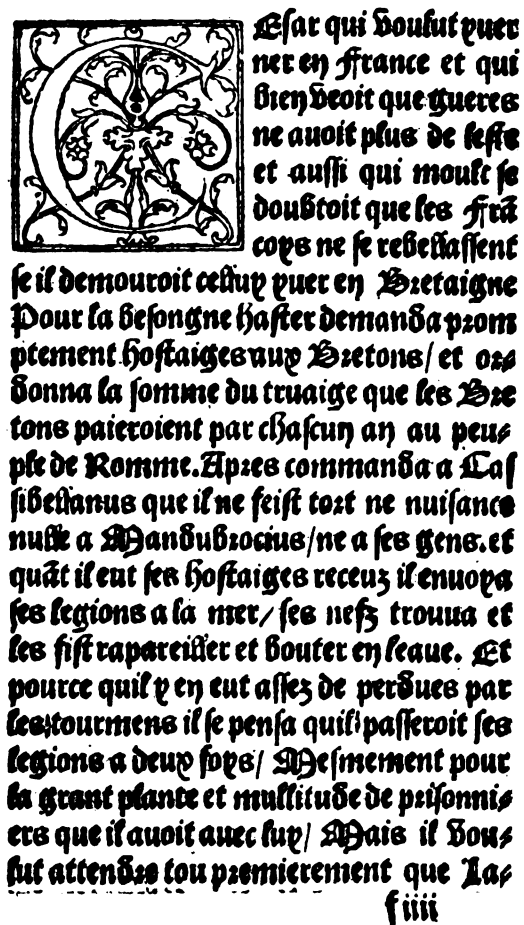 CEsar qui voulut yuer
ner en France et qui
bien veoit que gueres
ne auoit plus de leste
et aussi qui moult se
doubtoit que les Frã
coys ne se rebellassent
se il demouroit celluy yuer en Bretaigne
Pour la besongne haster demanda prom
ptement hostaiges aux Bretons/ et or⸗
donna la somme du truaige que les Bre
tons paieroient par chascun an au peu⸗
ple de Romme. Apres commanda a Cas
sibellanus que il ne feist tort ne nuisance
nulle a Mandubrocius/ne a ses gens. et
quãt il eut ses hostaiges receuz il enuoya
ses legions a la mer/ ses nefz trouua et
les fist rapareiller et bouter en leaue. Et
pource quil y en eut assez de perdues par
les tourmens il se pensa quil passeroit ses
legions a deux foys/ Mesmement pour
la grant plante et mullitude de prisonni⸗
ers que il auoit auec luy/ Mais il vou⸗
lut attendre tou premierement que La⸗
f iiii